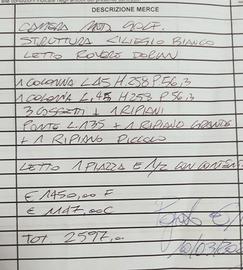 DESCRIZIONE MERCE
CAMERA MOD. GOLF.
STRUTTURA CILIEGIO BIANCO
LETTO ROVERE DORIAN
1 COLONNA L.45 H 258 P 56,3
1 COLONNA L.45 H 258 P 56.3
3 CASSETTI + 1 RIPIANI
PONTE L.135 + 1 RIPIANO GRANDE
+ 1 RIPIANO PICCOLO
LETTO 1 PIAZZA E 1/2 CON CONTEN
€ 1450,00 F
€ 1147,00 C
TOT. 2597,00
10/03/20